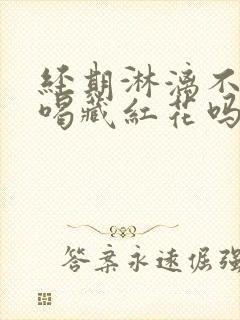 经期淋漓不
喝藏红花吗
答案永远倔强